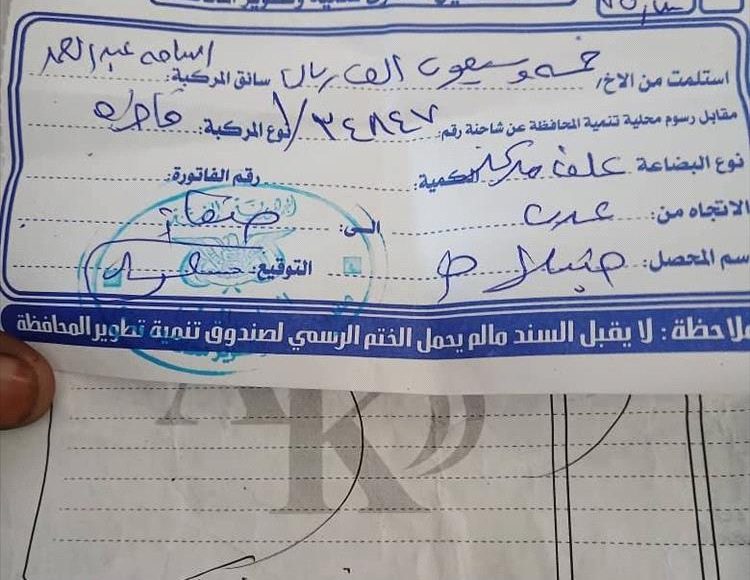 استلمت من الاخ/ خمسه وسبعون الف ريال سائق المركبة: اسامه عبدالحمد
مقابل رسوم محلية تنمية المحافظة عن شاحنة رقم: ٣٤٨٤٧ / نوع المركبة: قاطره
نوع البضاعة علف مركز الكمية: رقم الفاتورة:
الاتجاه من: عدن الى: صنعاء
سم المحصل: التوقيع:
ملاحظة: لا يقبل السند مالم يحمل الختم الرسمي لصندوق تنمية تطوير المحافظة
AK